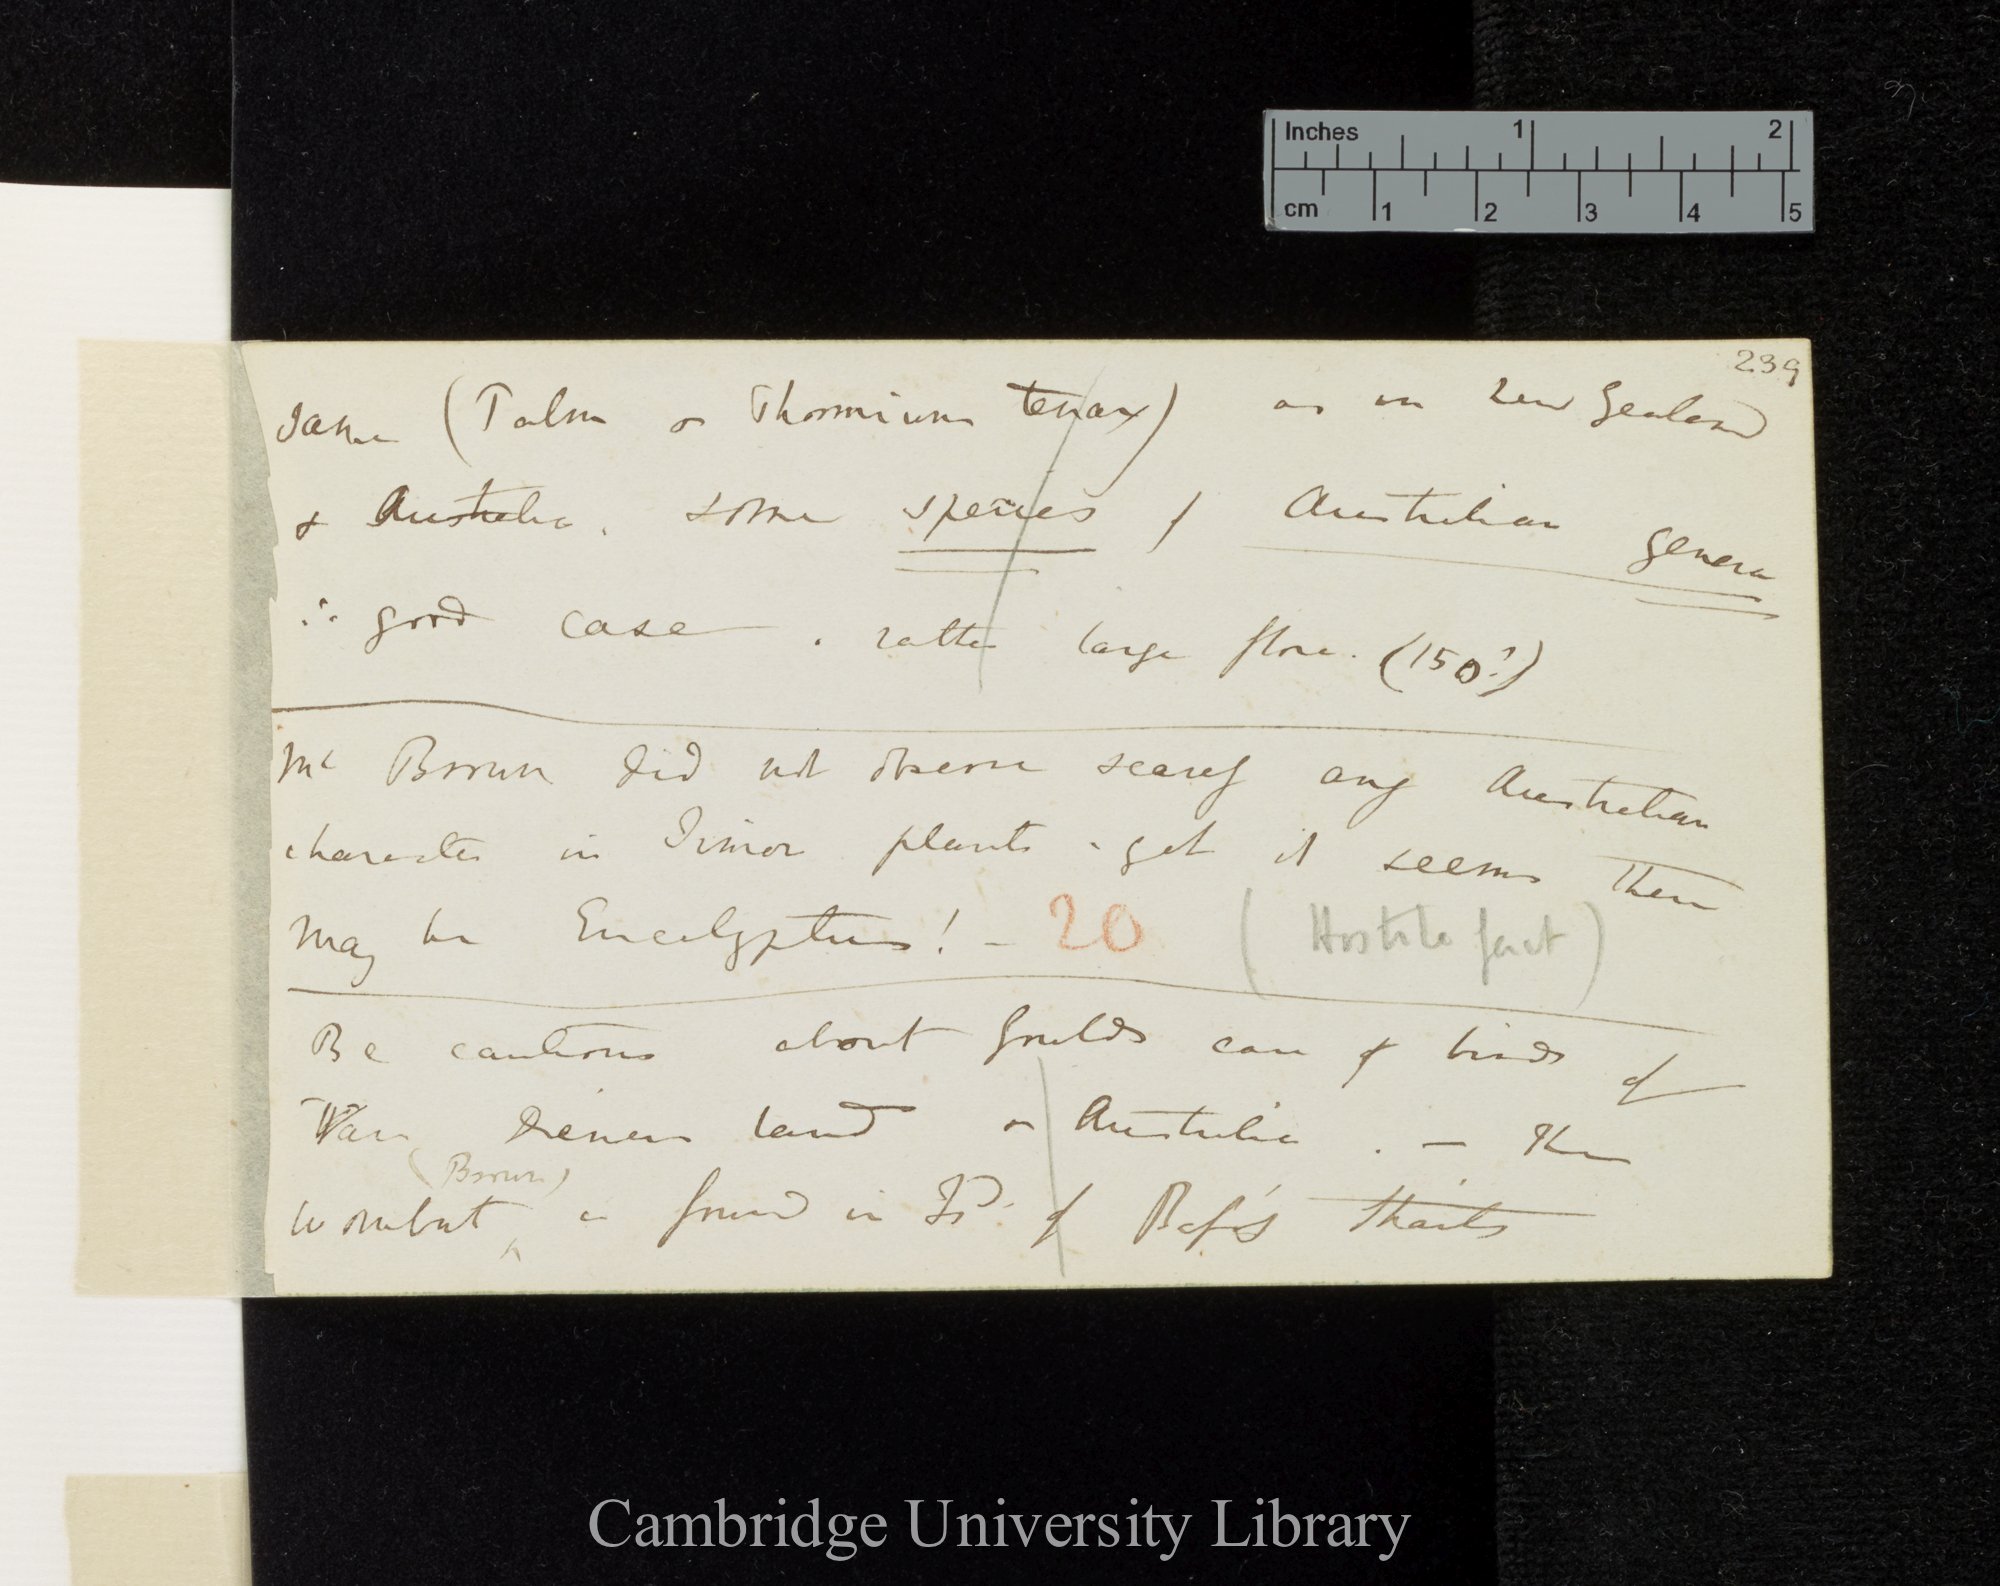 Inches 1 2
cm 1 2 3 4 5
239
same (Palm & Phormium tenax) as in New Zealand
& Australia. some species of Australian genera
∴ good case. rather large flora. (150?)
Mr Brown did not observe scarcely any Australian
character in Timor plants. yet it seems there
may be Eucalyptus! — 20 (Hostile fact)
Be cautious about Goulds case of birds of
Van Diemen land & Australia. — The
(Brown)
Wombat ^ is found in Isd. of Bass's Straits
Cambridge University Library